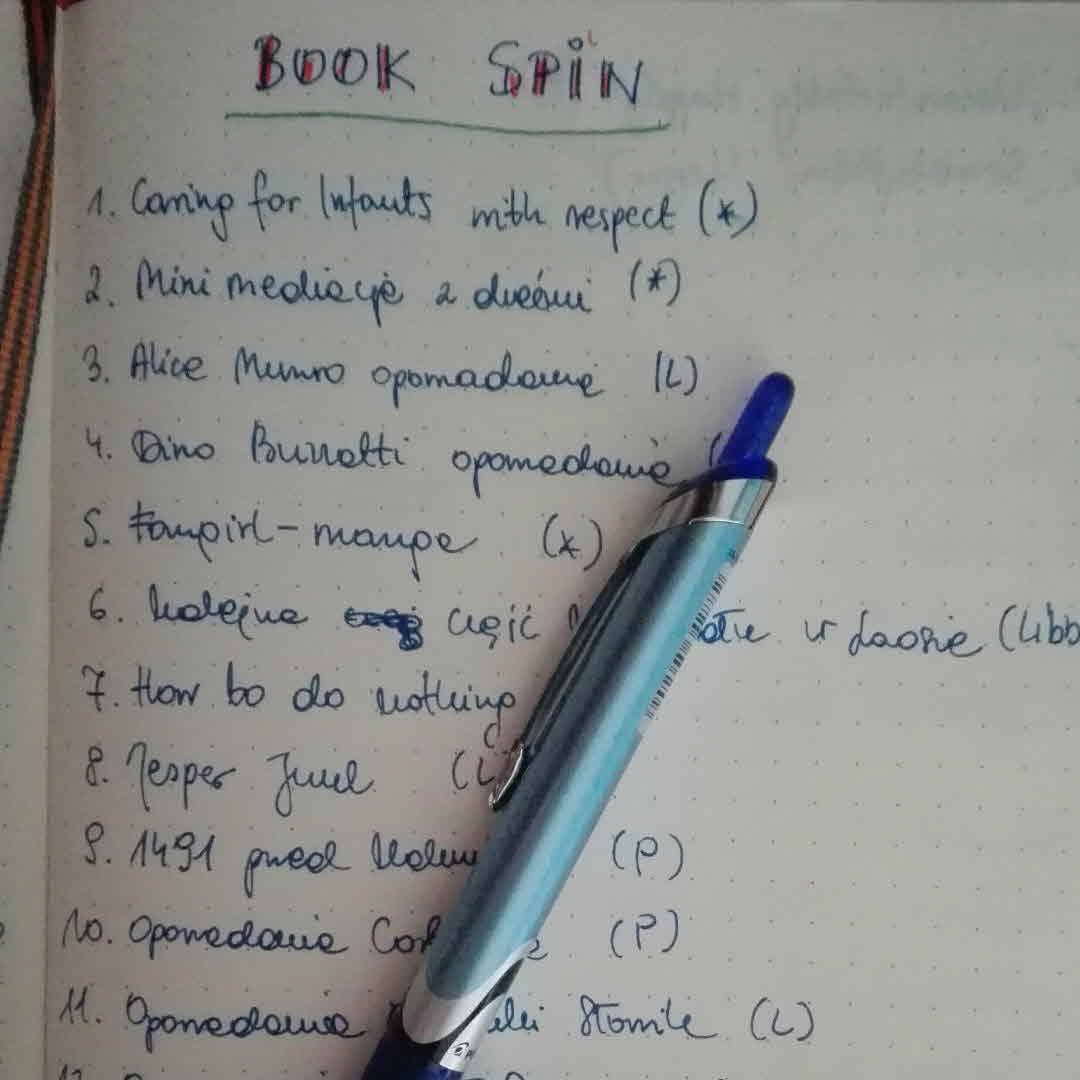 BOOK SPIN
1. Caring for Infants with respect (*)
2. Mini mediacje z dziećmi (*)
3. Alice Munro opowiadania (L)
4. Dino Buzzatti opowiadania (
5. Fangirl - manga (*)
6. Kolejna część w Laosie (Libb
7. How to do nothing
8. Jesper Juul (L)
9. 1491 przed (P)
10. Opowiadania (P)
11. Opowiadania Słomile (L)